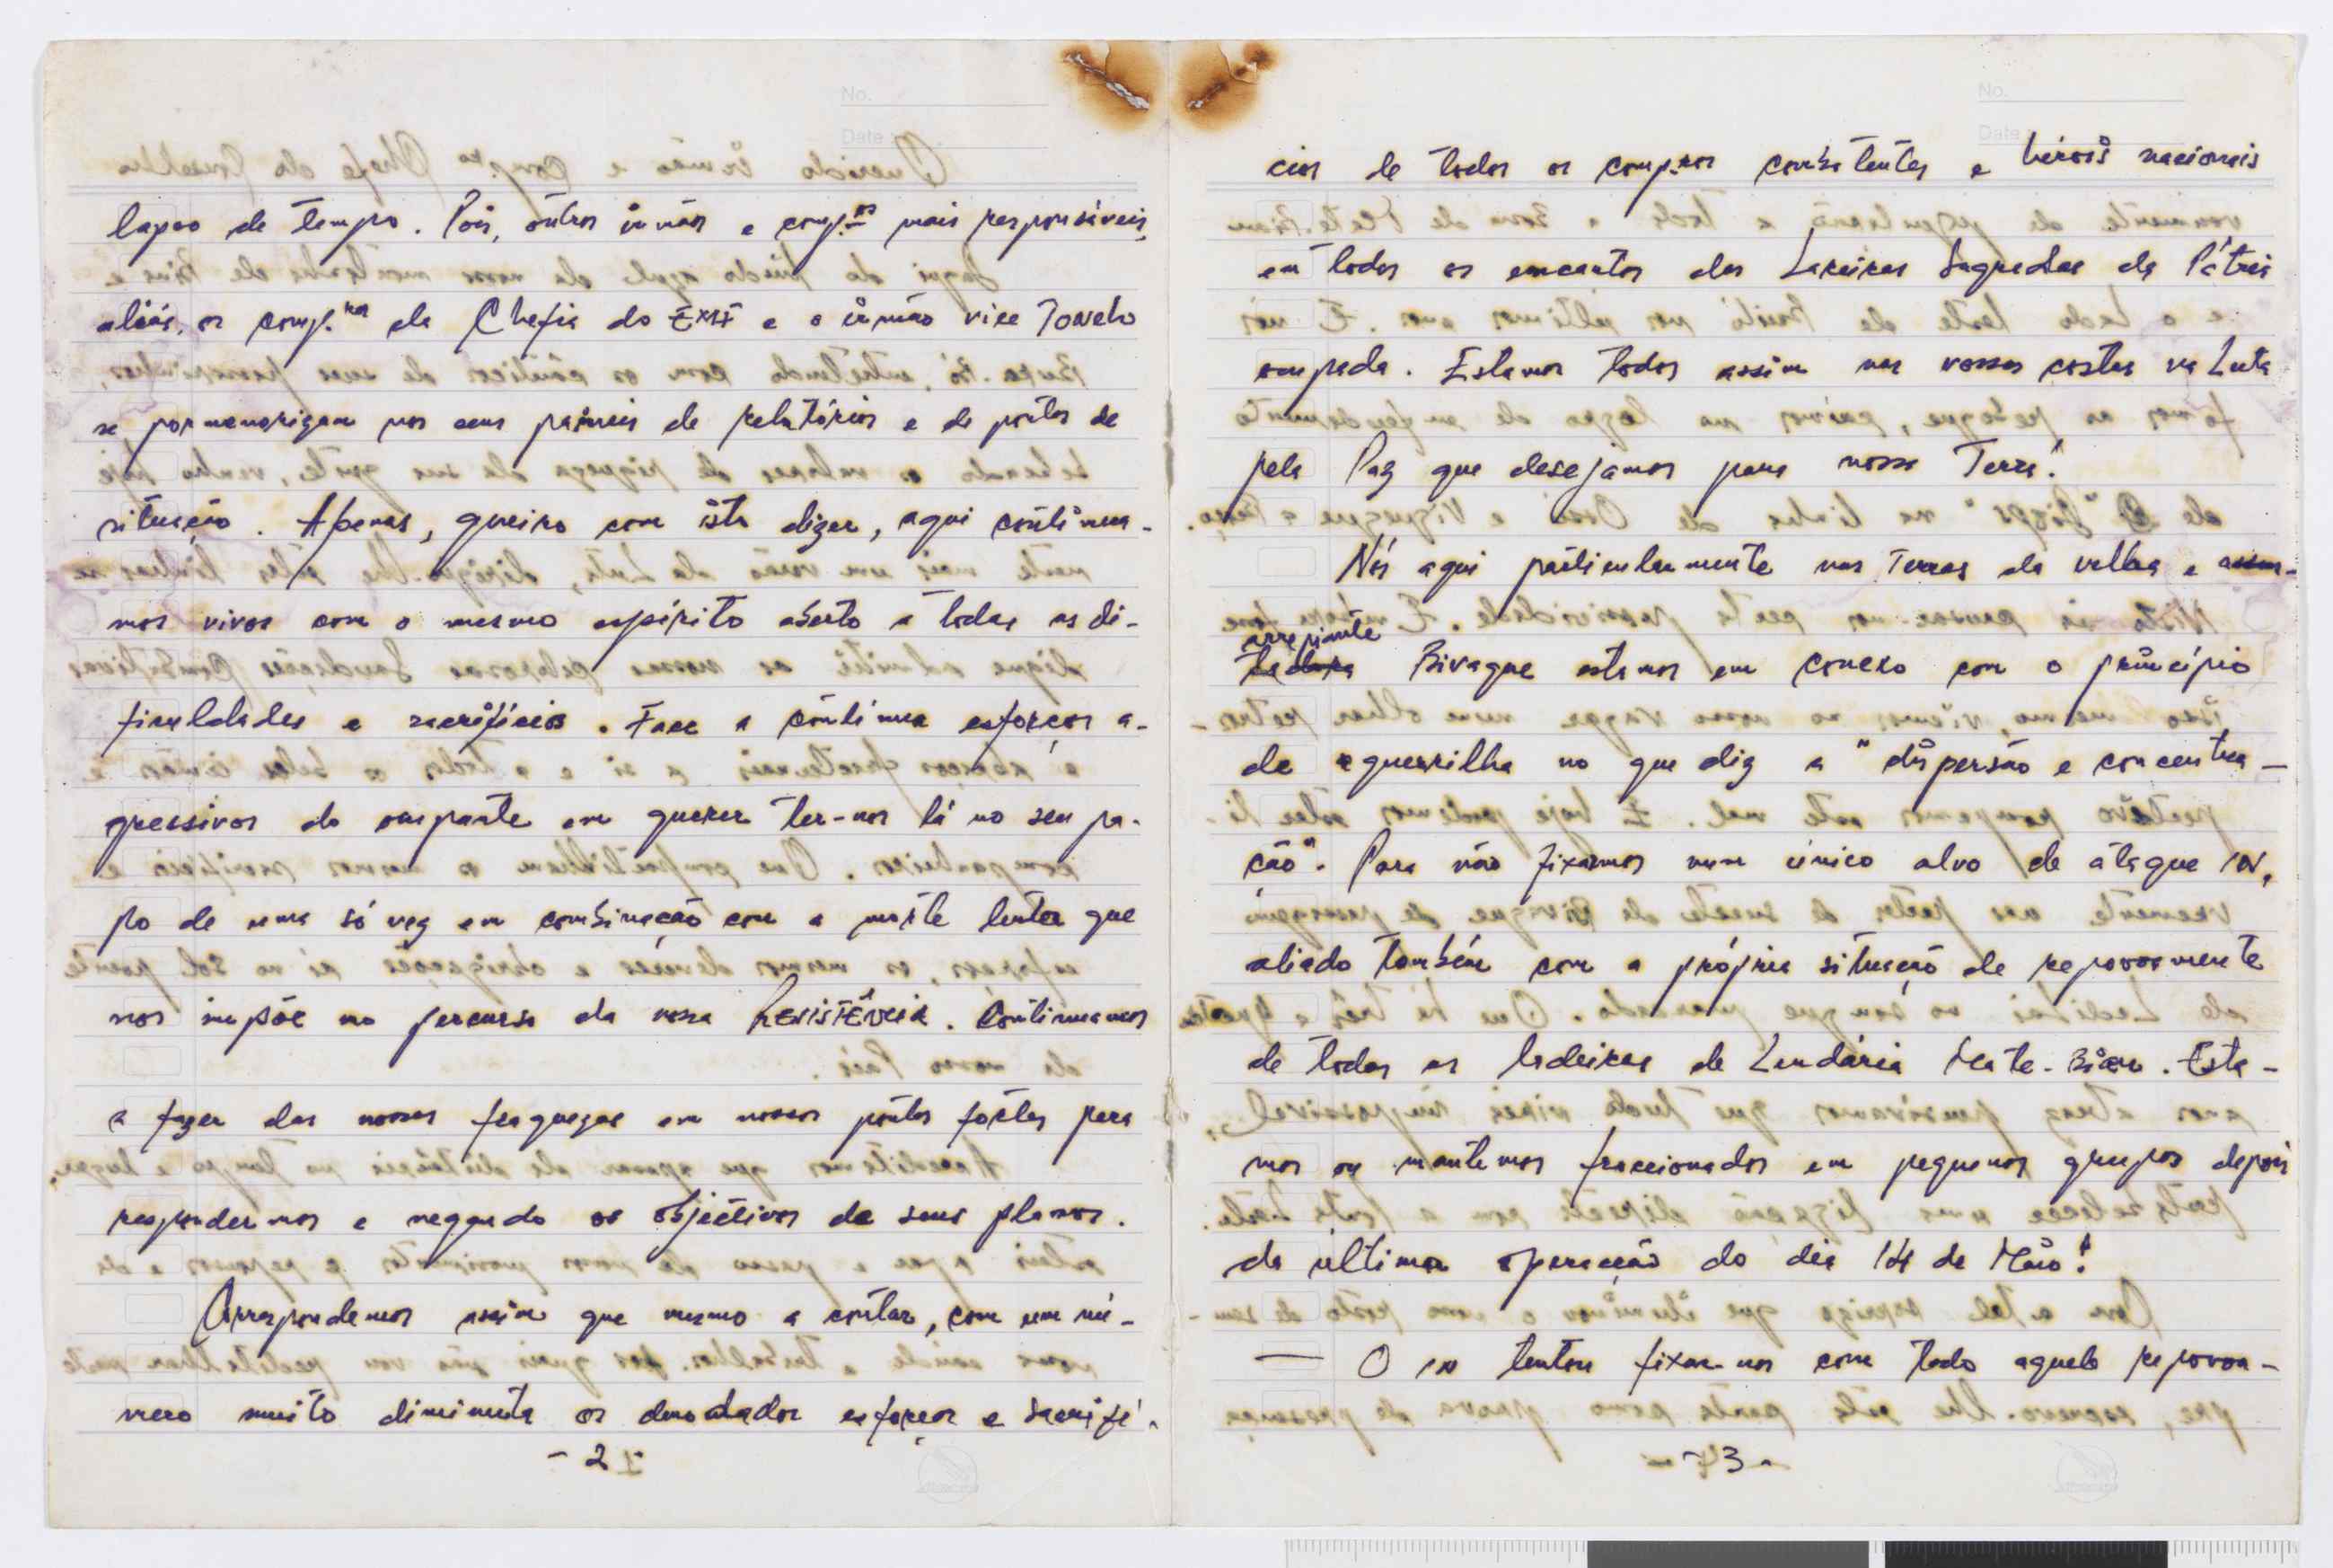 No.
Date
lapso de tempo. Pois, outros irmãos e comp.os mais responsáveis,
aliás, os comp.ros da Chefia do EXSI e o irmão vice
se pormenorizam nos seus painéis de relatórios e de pontos de
situação. Apenas, queiro com isto dizer, aqui continua-
mos vivos com o mesmo espírito aberto a todas as di-
ficuldades e sacrifícios. Face a contínua esforços a-
gressivos do ocupante em querer ter-nos lá no seu pa-
po de uma só vez em combinação com a morte lenta que
nos impõe no percurso da nossa Resistência. Continuamos
a fazer das nossas fraquezas em nossos pontos fortes para
respondermos e negando os objectivos de seus planos.
Correspondemos assim que mesmo a contar, com um nú-
mero muito diminuta os denodados esforços e sacrifí-
- 2 -
No.
Date
cios de todos os comp.ros combatentes e heróis nacionais
em todos os encantos das Lareiras Sagradas da Pátria
ocupada. Estamos todos assim nas vossas costas na Luta
pela Paz que desejamos para nossa Terra!
Nós aqui particularmente nas Terras da velha e
arrepiante
Bivaque estamos em conexo com o princípio
de guerrilha no que diz a "dispersão e concentra-
ção". Para não fixarmos num único alvo de ataque IN,
aliado também com a própria situação de repovoamente
de todas as ladeiras de Lendária Mate-Bian. Esta-
mos ou mantemos fraccionados em pequenos grupos depois
da última operação do dia 14 de Maio!
— O IN tentou fixar-nos com todo aquelo repovoa-
- 3 -